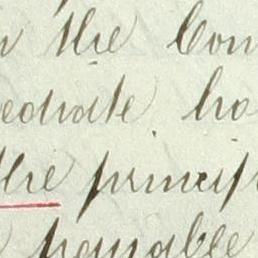 the Con
ediate ho
the princip
payable